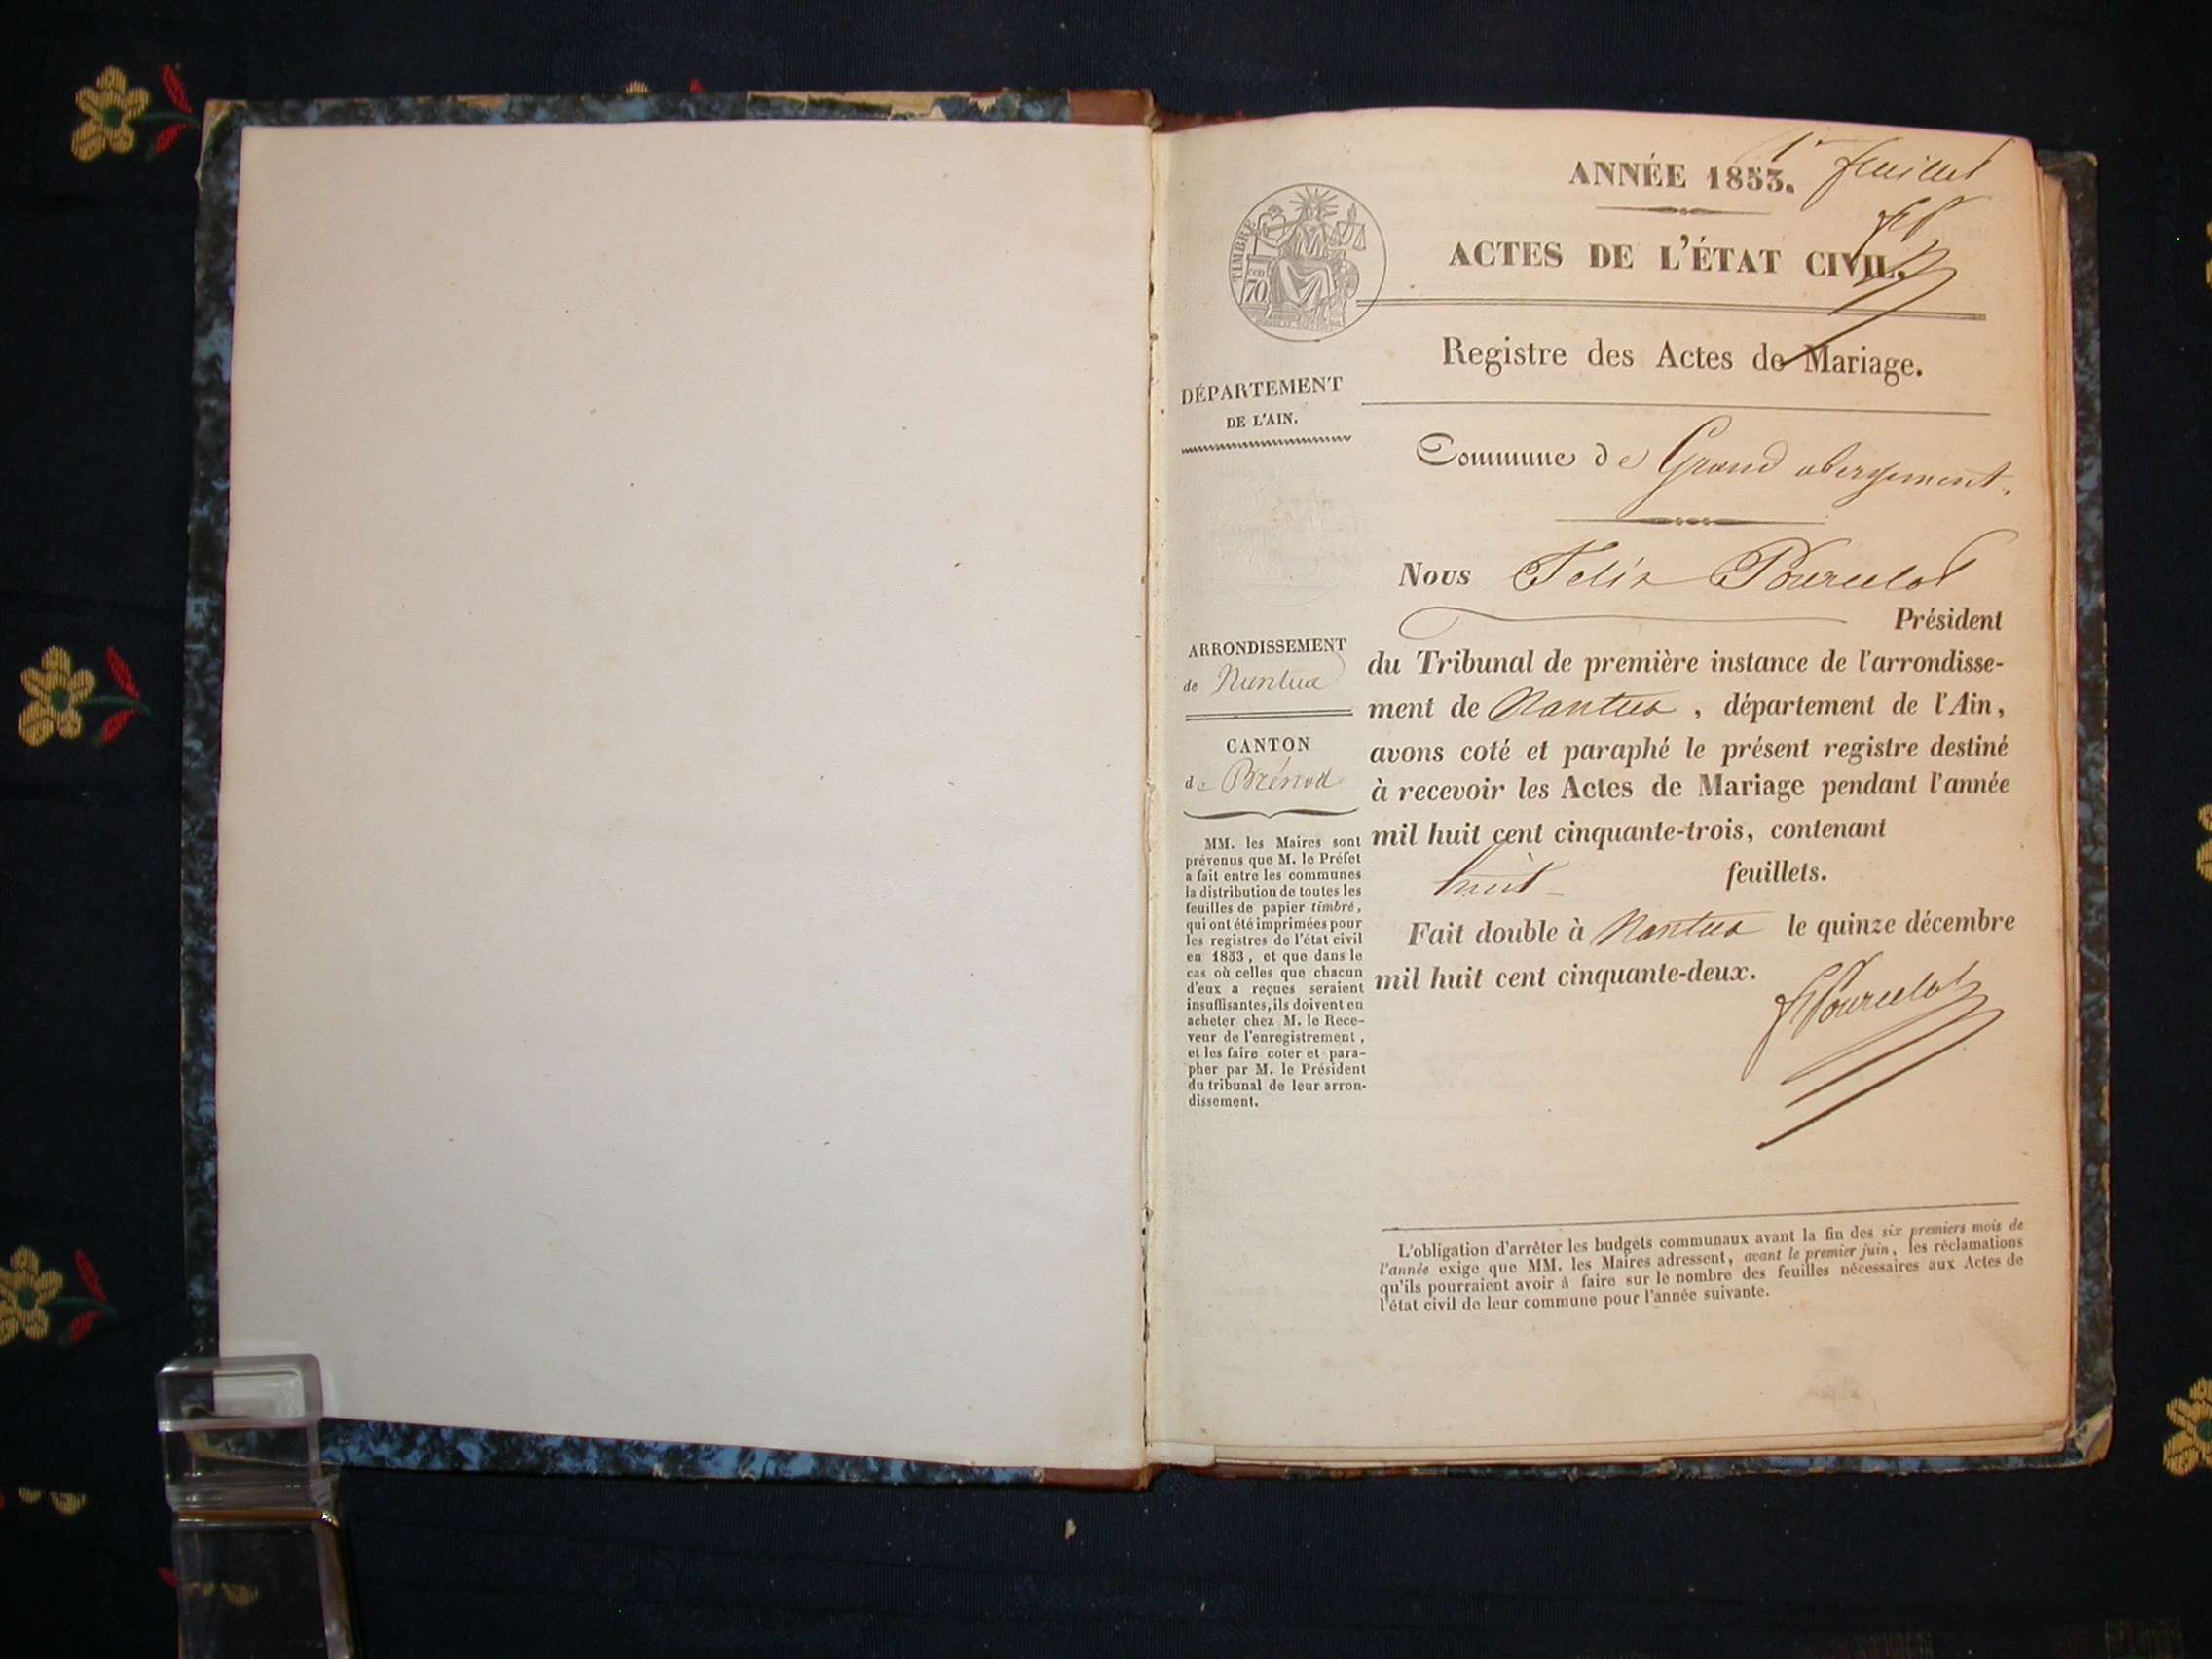 1er feuillet
ANNÉE 1853.
FP
TIMBRE
70
ACTES DE L'ÉTAT CIVIL.
Registre des Actes de Mariage.
DÉPARTEMENT
DE L'AIN.
Commune de Grand abergement.
Nous Félix Pourcelot
Président
du Tribunal de première instance de l'arrondisse-
ment de Nantua, département de l'Ain,
avons coté et paraphé le présent registre destiné
à recevoir les Actes de Mariage pendant l'année
mil huit cent cinquante-trois, contenant
huit feuillets.
Fait double à Nantua le quinze décembre
mil huit cent cinquante-deux.
FPourcelot
ARRONDISSEMENT
de Nantua
CANTON
de Brénod
MM. les Maires sont
prévenus que M. le Préfet
a fait entre les communes
la distribution de toutes les
feuilles de papier timbré,
qui ont été imprimées pour
les registres de l'état civil
en 1853, et que dans le
cas où celles que chacun
d'eux a reçues seraient
insuffisantes, ils doivent en
acheter chez M. le Rece-
veur de l'enregistrement,
et les faire coter et para-
pher par M. le Président
du tribunal de leur arron-
dissement.
L'obligation d'arrêter les budgets communaux avant la fin des six premiers mois de
l'année exige que MM. les Maires adressent, avant le premier juin, les réclamations
qu'ils pourraient avoir à faire sur le nombre des feuilles nécessaires aux Actes de
l'état civil de leur commune pour l'année suivante.